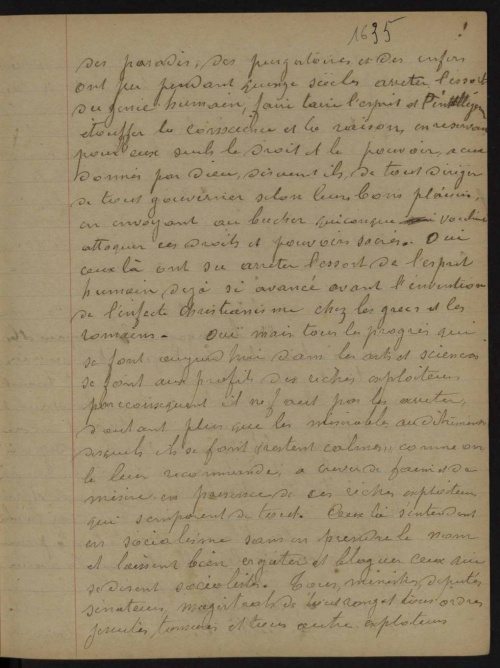 1635
des paradis, des purgatoires et des enfers
ont pu pendant quinze siècles arreter l'essort
du génie humain, faire taire l'esprit et l'intelligen
étouffer la conscience et la raison, en reservan
pour eux seuls le droit et le pouvoir, a eux
donnés par dieu, disent ils, de tout diriger
de tous gouverner selon leurs bons plaisirs,
en envoyant au bucher quiconque voulai
attaquer ces droits et pouvoirs sacrés. Oui
ceux là ont su arreter l'essort de l'esprit
humain dejà si avancé avant l'invention
de l'infecte Christianisme chez les grecs et les
romains. Oui mais tous les progrès qui
se font aujourd'hui dans les arts et sciences
se font aux profits des riches exploiteurs
par consequent il ne faut pas les arreter,
d'autant plus que les miserables, au détriment
desquels ils se font restent calmes, comme on
le leur recommande, a crever de faim et de
misère en presence de ces riches exploiteurs
qui s'emparent de tout. Ceux là s'entendent
en socialisme sans en prendre le nom
et laissent bien ergoter et blaguer ceux qui
se disent socialistes. Tous, ministres, députés
senateurs, magistrats de tous rangs et tous ordres
jesuites, tonsurés et tous autre exploiteurs